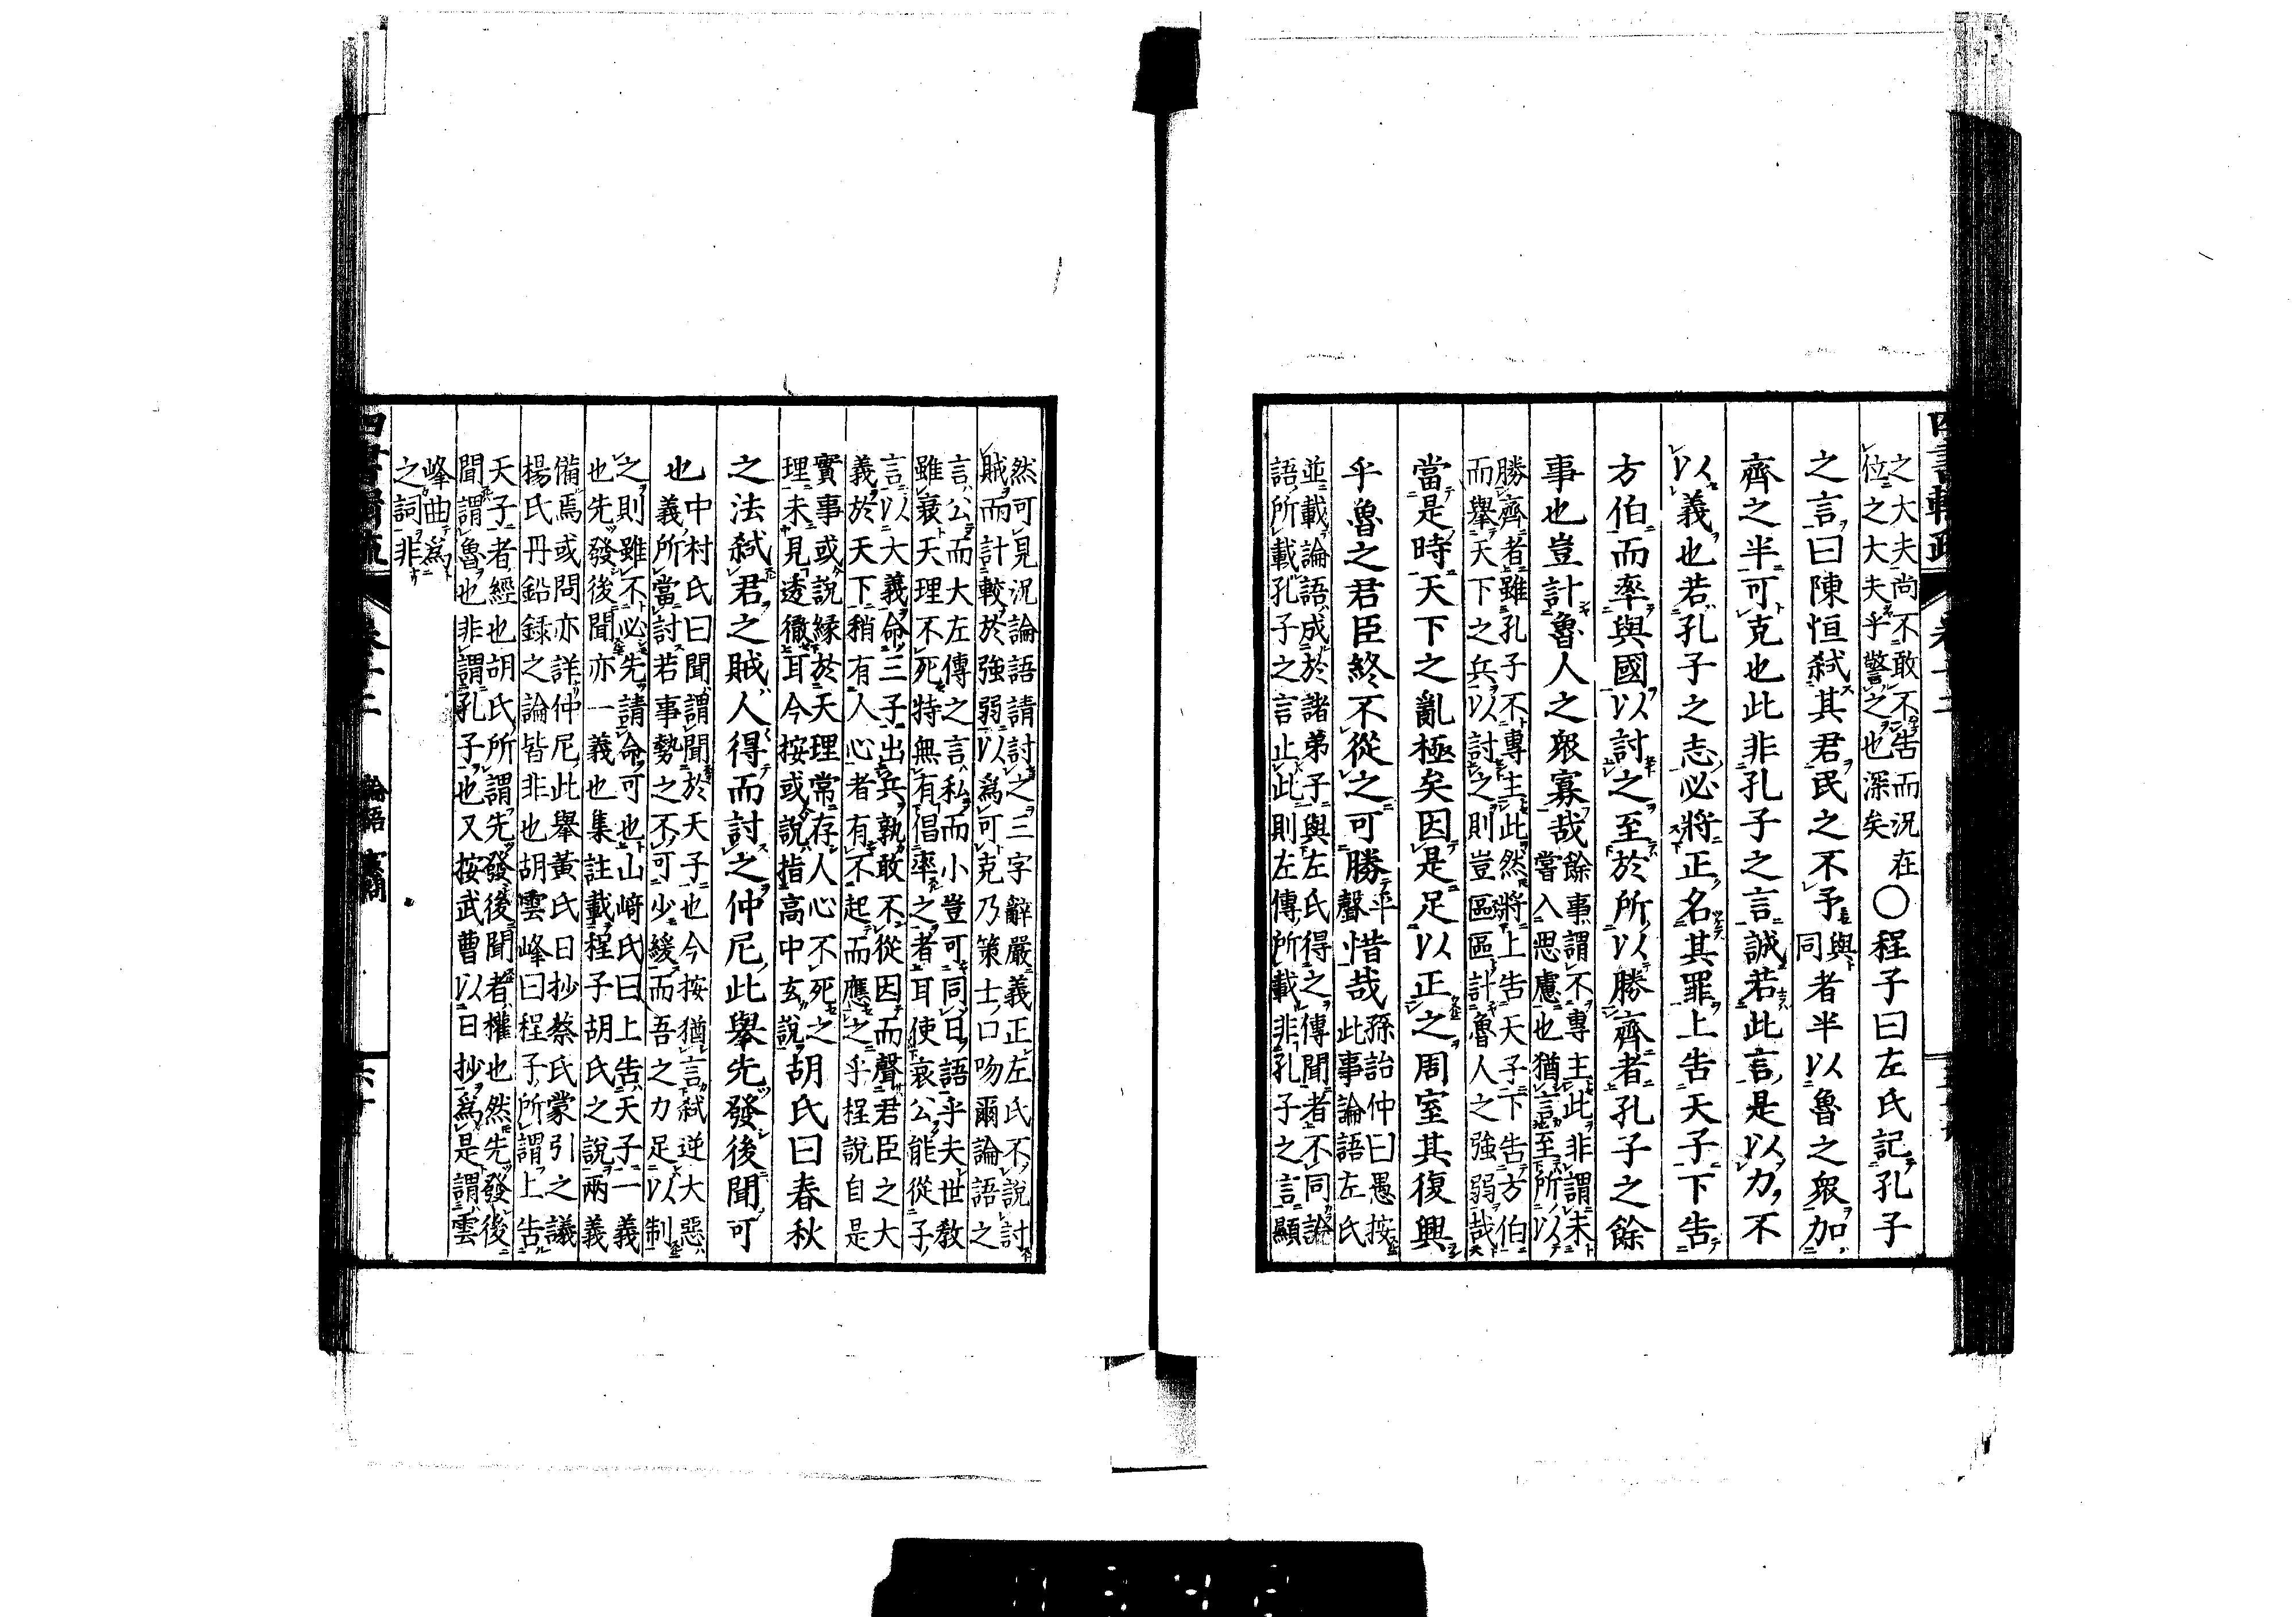 之大夫尚不敢不告而況在
位之大夫乎警之也深矣
○程子曰左氏記孔子
之言曰陳恒弑其君民之不予
與
同
者半以魯之衆加
齊之半可克也此非孔子之言誠若此言是以力不
以義也若孔子之志必將正名其罪上告天子下告
方伯而率與國以討之至於所以勝齊者孔子之餘
事也豈計魯人之衆寡哉
餘事謂不專主此非謂未
嘗入思慮也猶言至所以
勝齊者雖孔子不專主此然將上告天子下告方伯
而舉天下之兵以討之則豈區區計魯人之強弱哉
當是時天下之亂極矣因是足以正之周室其復興
乎魯之君臣終不從之可勝
平
聲
惜哉
孫詒仲曰愚按
此事論語左氏
並載論語成於諸弟子與左氏得之傳聞者不同論
語所載孔子之言止此則左傳所載非孔子之言顯
然可見況論語請討之三字辭嚴義正左氏不說討
賊而計較於強弱以爲可克乃策士口吻爾論語之
言公而大左傳之言私而小豈可同日語乎夫世教
雖衰天理不死特無有倡率之者耳使哀公能從子
言以大義命三子出兵孰敢不從因而聲君臣之大
義於天下稍有人心者有不起而應之乎程說自是
實事或說緣於天理常存人心不死之
理未見透徹耳今按或說指高中玄說
胡氏曰春秋
之法弑君之賊人得而討之仲尼此舉先發後聞可
也
中村氏曰聞謂聞於天子也今按猶言弑逆大惡
義所當討若事勢之不可少緩而吾之力足以制
之則雖不必先請命可也山﨑氏曰上告天子一義
也先發後聞亦一義也集註載程子胡氏之說兩義
備焉或問亦詳仲尼此舉黃氏日抄蔡氏蒙引之議
楊氏丹鉛錄之論皆非也胡雲峰曰程子所謂上告
天子者經也胡氏所謂先發後聞者權也然先發後
聞謂魯也非謂孔子也又按武曹以日抄爲是謂雲
峰曲爲
之詞非